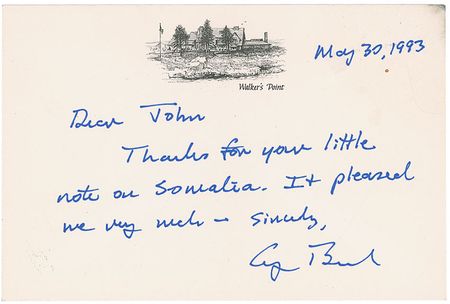 May 30, 1993
Walker's Point
Dear John
Thanks for your little
note on Somalia. It pleased
me very much — sincerely,
G Bush